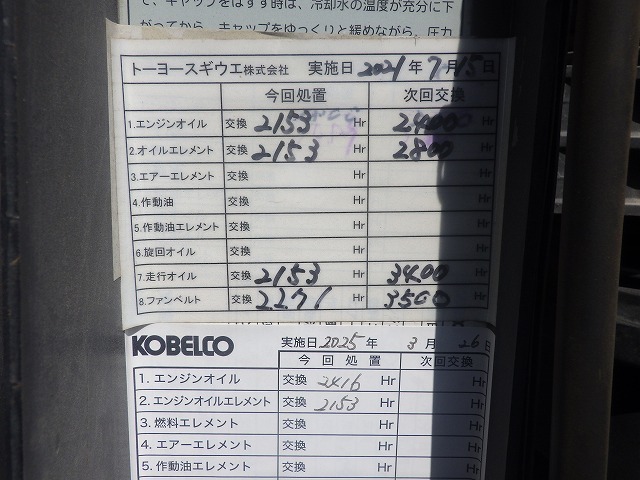 て、キャップをはずす時は、冷却水の温度が充分に下
がってから、キャップをゆっくりと緩めながら、圧力
トーヨースギウエ株式会社 実施日 2021年7月15日
今回処置 次回交換
1.エンジンオイル 交換 2153 Hr 2400 Hr
2.オイルエレメント 交換 2153 Hr 2800 Hr
3.エアーエレメント 交換 Hr Hr
4.作動油 交換 Hr Hr
5.作動油エレメント 交換 Hr Hr
6.旋回オイル 交換 Hr Hr
7.走行オイル 交換 2153 Hr 3400 Hr
8.ファンベルト 交換 2271 Hr 3500 Hr
KOBELCO 実施日 2025年3月26日
今回処置 次回交換
1.エンジンオイル 交換 2416 Hr Hr
2.エンジンオイルエレメント 交換 2153 Hr Hr
3.燃料エレメント 交換 Hr Hr
4.エアーエレメント 交換 Hr Hr
5.作動油エレメント 交換 Hr Hr